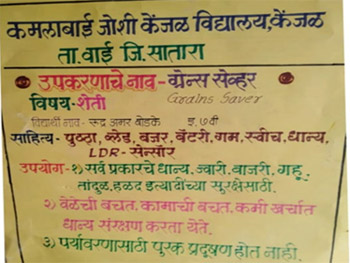 कमलाबाई जोशी केंजळ विद्यालय,केंजळ
ता.वाई जि.सातारा
उपकरणाचे नाव - ग्रेन्स सेव्हर
विषय - शेती Grains Saver
विद्यार्थी नाव - रुद्र अमर बोडके इ.७वी
साहित्य - पुठ्ठा, ब्लेड, बजर, बॅटरी, गम, स्वीच, धान्य,
LDR - सेन्सॉर
उपयोग - १) सर्व प्रकारचे धान्य, ज्वारी, बाजरी, गहू,
तांदुळ, हळद इत्यादींच्या सुरक्षेसाठी.
२) वेळेची बचत, कामाची बचत, कमी खर्चात
धान्य संरक्षण करता येते.
३) पर्यावरणासाठी पुरक प्रदूषण होत नाही.